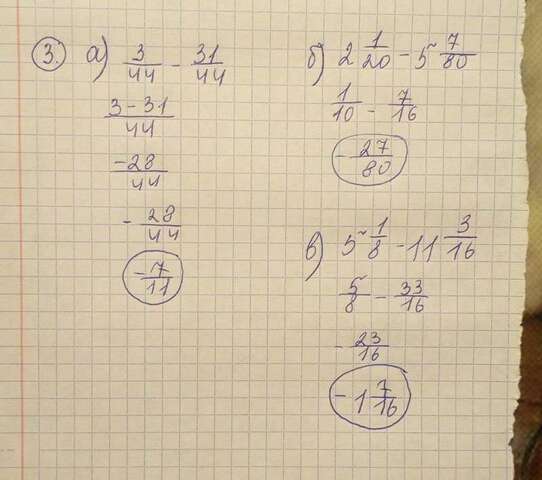 3. а) 3/44 - 31/44
3 - 31/44
-28/44
- 28/44
- 7/11
б) 2 1/20 - 5 7/80
1/10 - 7/16
- 27/80
в) 5 1/8 - 11 3/16
5/8 - 33/16
- 23/16
- 1 7/16